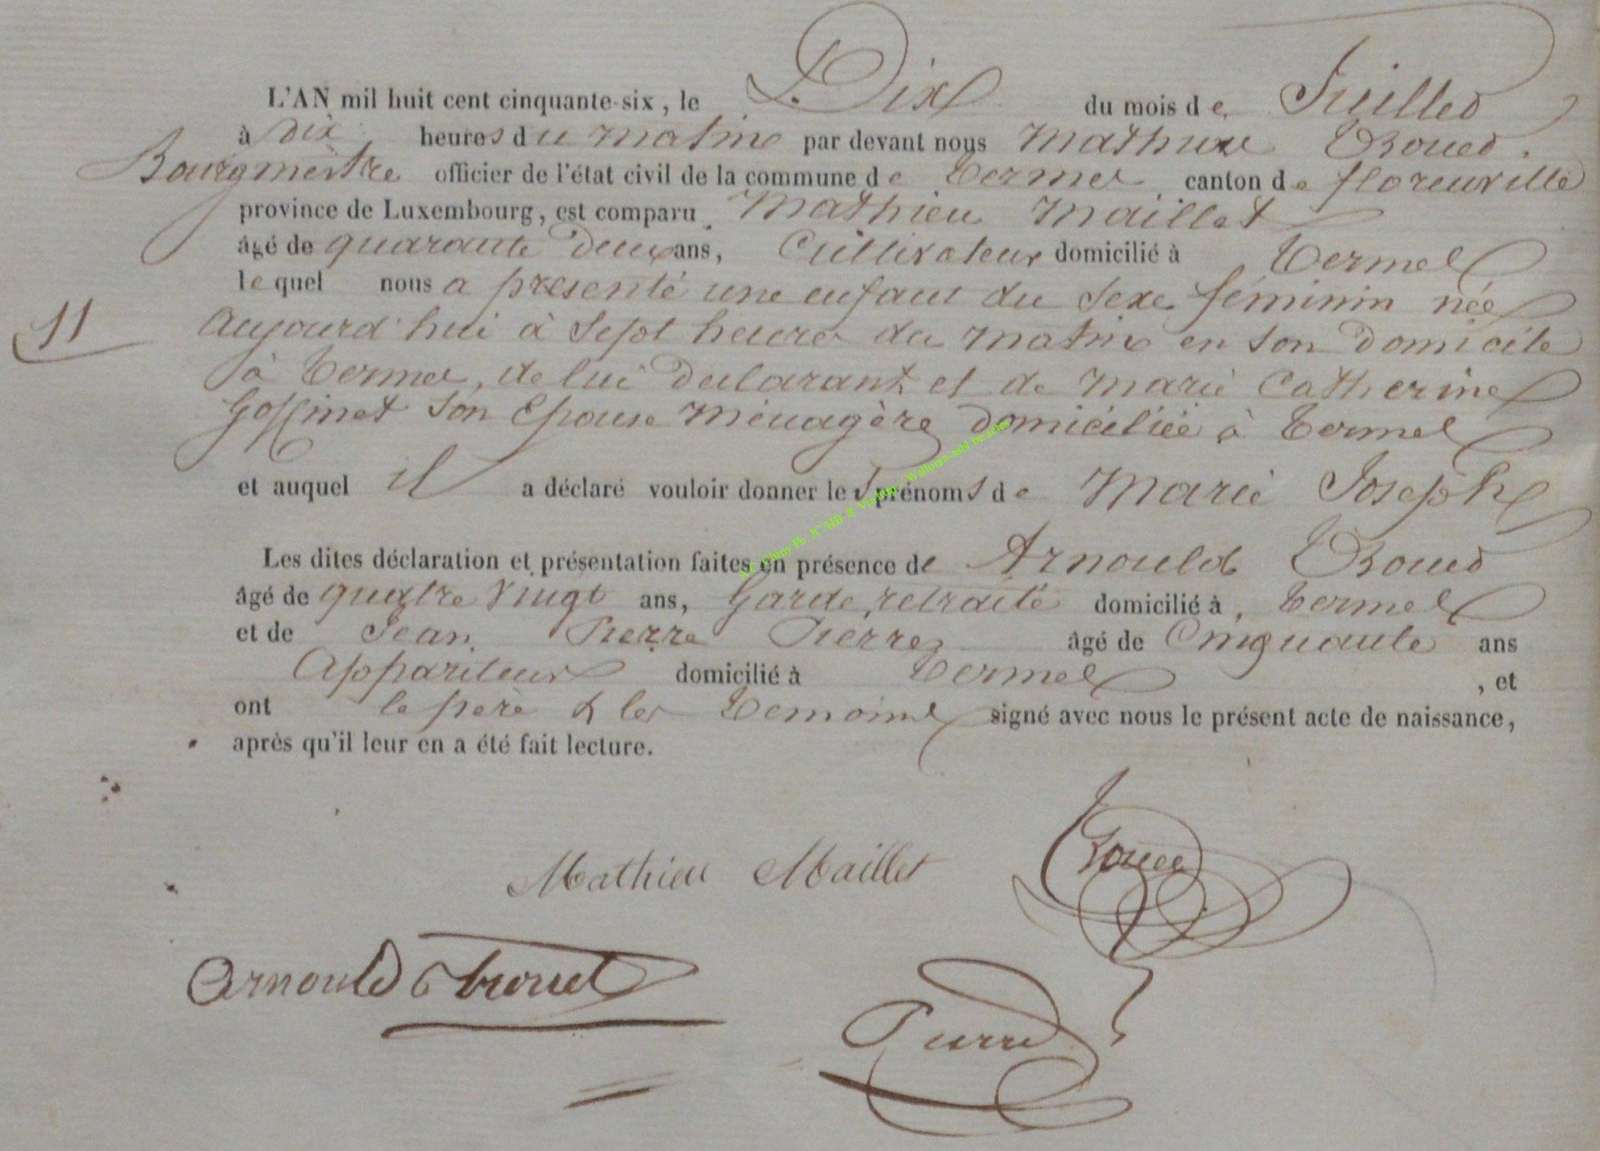 L'AN mil huit cent cinquante-six, le Dix du mois de Juillet
à dix heures du matin par devant nous Mathieu
Bourgmèstre officier de l'état civil de la commune de Termes canton de florenville
province de Luxembourg, est comparu Mathieu Maillet
âgé de quarante Deux ans, Cultivateur domicilié à Termes
le quel nous a présenté une enfant du Sexe féminin née
11
Aujourd'hui à Sept heures du matin en son Domicile
à Termes, de lui Déclarant et de Marie Catherine
Goffinet son Epouse Ménagère domiciliée à Termes
et auquel il a déclaré vouloir donner les prénoms de Marie Joseph
Les dites déclaration et présentation faites en présence de Arnould
âgé de quatre Vingt ans, Garde retraité domicilié à Termes
et de Jean Pierre Pierre âgé de Cinquante ans
Appariteur domicilié à Termes, et
ont le père & les Temoins signé avec nous le présent acte de naissance,
après qu'il leur en a été fait lecture.
Mathieu Maillet
Arnould
Pierre